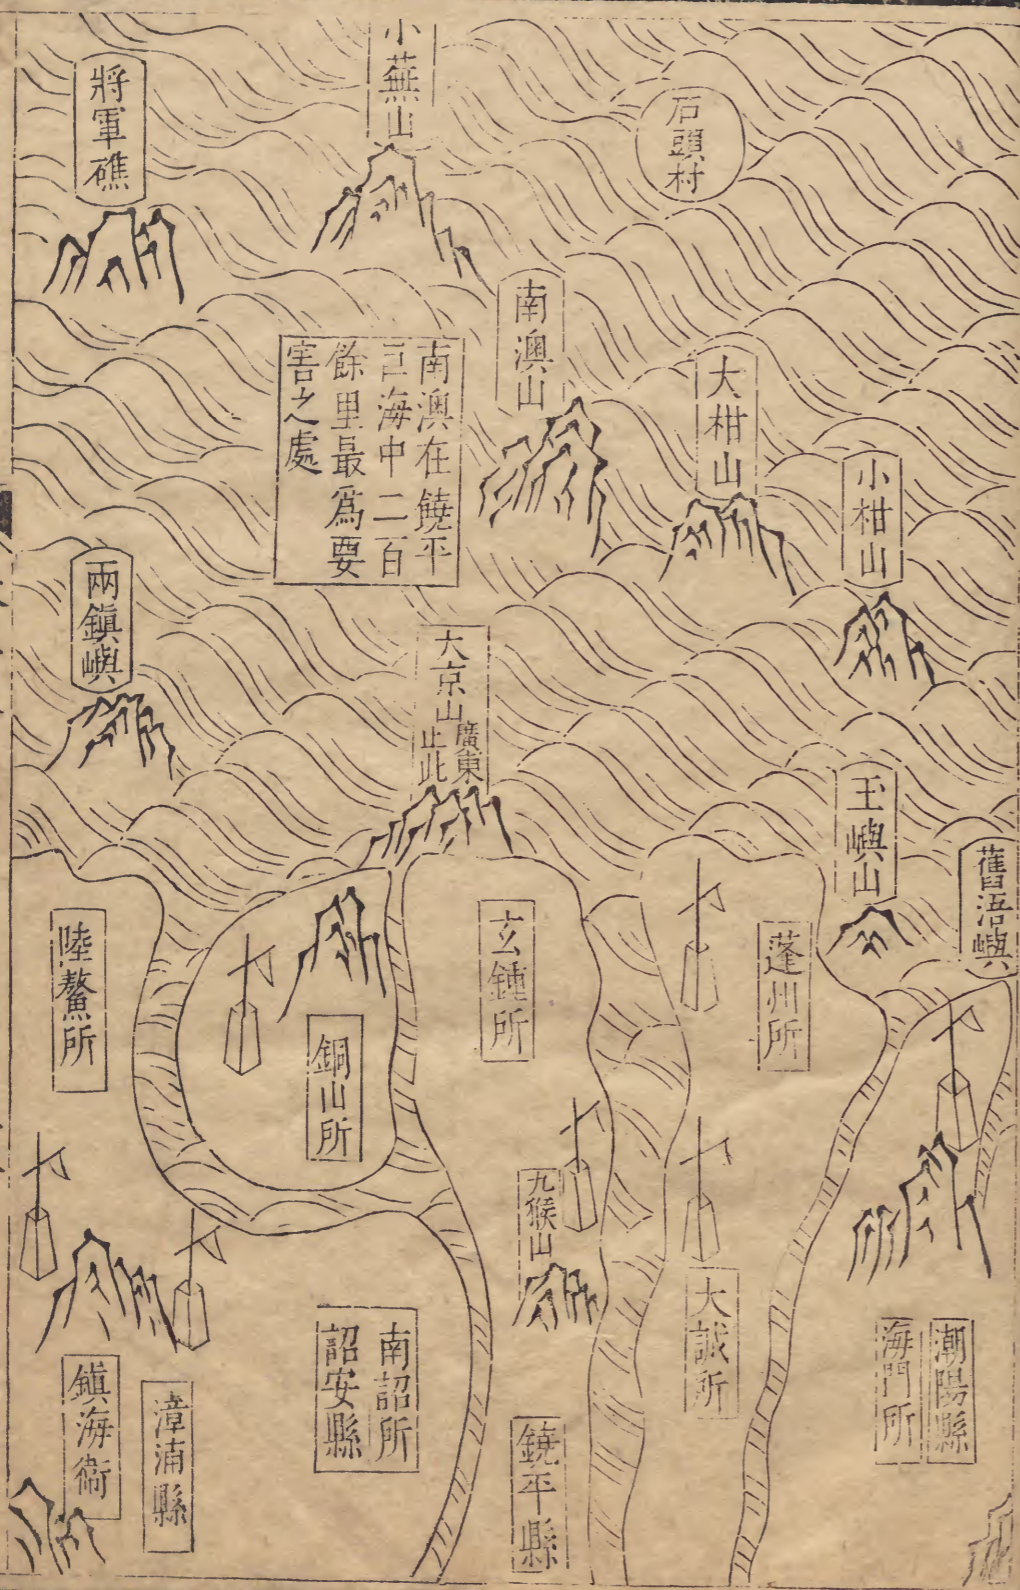 石頭村
小蕪山
將軍礁
南澳山
大柑山
小柑山
南澳在饒平
巨海中二百
餘里最爲要
害之處
兩鎮嶼
大京山
廣東
止此
玉嶼山
舊浯嶼
蓬州所
玄鍾所
陸鰲所
銅山所
九猴山
大誠所
潮陽縣
海門所
南詔所
詔安縣
鎮海衞
漳浦縣
饒平縣